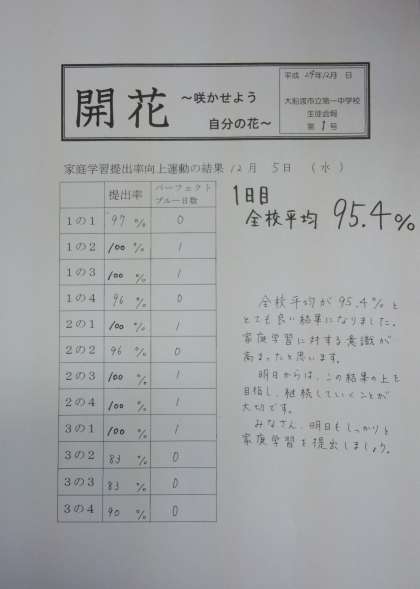 開花
～咲かせよう
自分の花～
平成 24年12月 日
大船渡市立第一中学校
生徒会報
第 1 号
家庭学習提出率向上運動の結果 12月 5日 (水)
提出率 パーフェクトブルー日数
1の1 97 % 0
1の2 100 % 1
1の3 100 % 1
1の4 96 % 0
2の1 100 % 1
2の2 96 % 0
2の3 100 % 1
2の4 100 % 1
3の1 100 % 1
3の2 83 % 0
3の3 83 % 0
3の4 90 % 0
1日目
全校平均 95.4%
全校平均が95.4%と
とても良い結果になりました。
家庭学習に対する意識が
高まったと思います。
明日からは、この結果の上を
目指し、継続していくことが
大切です。
みなさん、明日もしっかりと
家庭学習を提出しましょう。